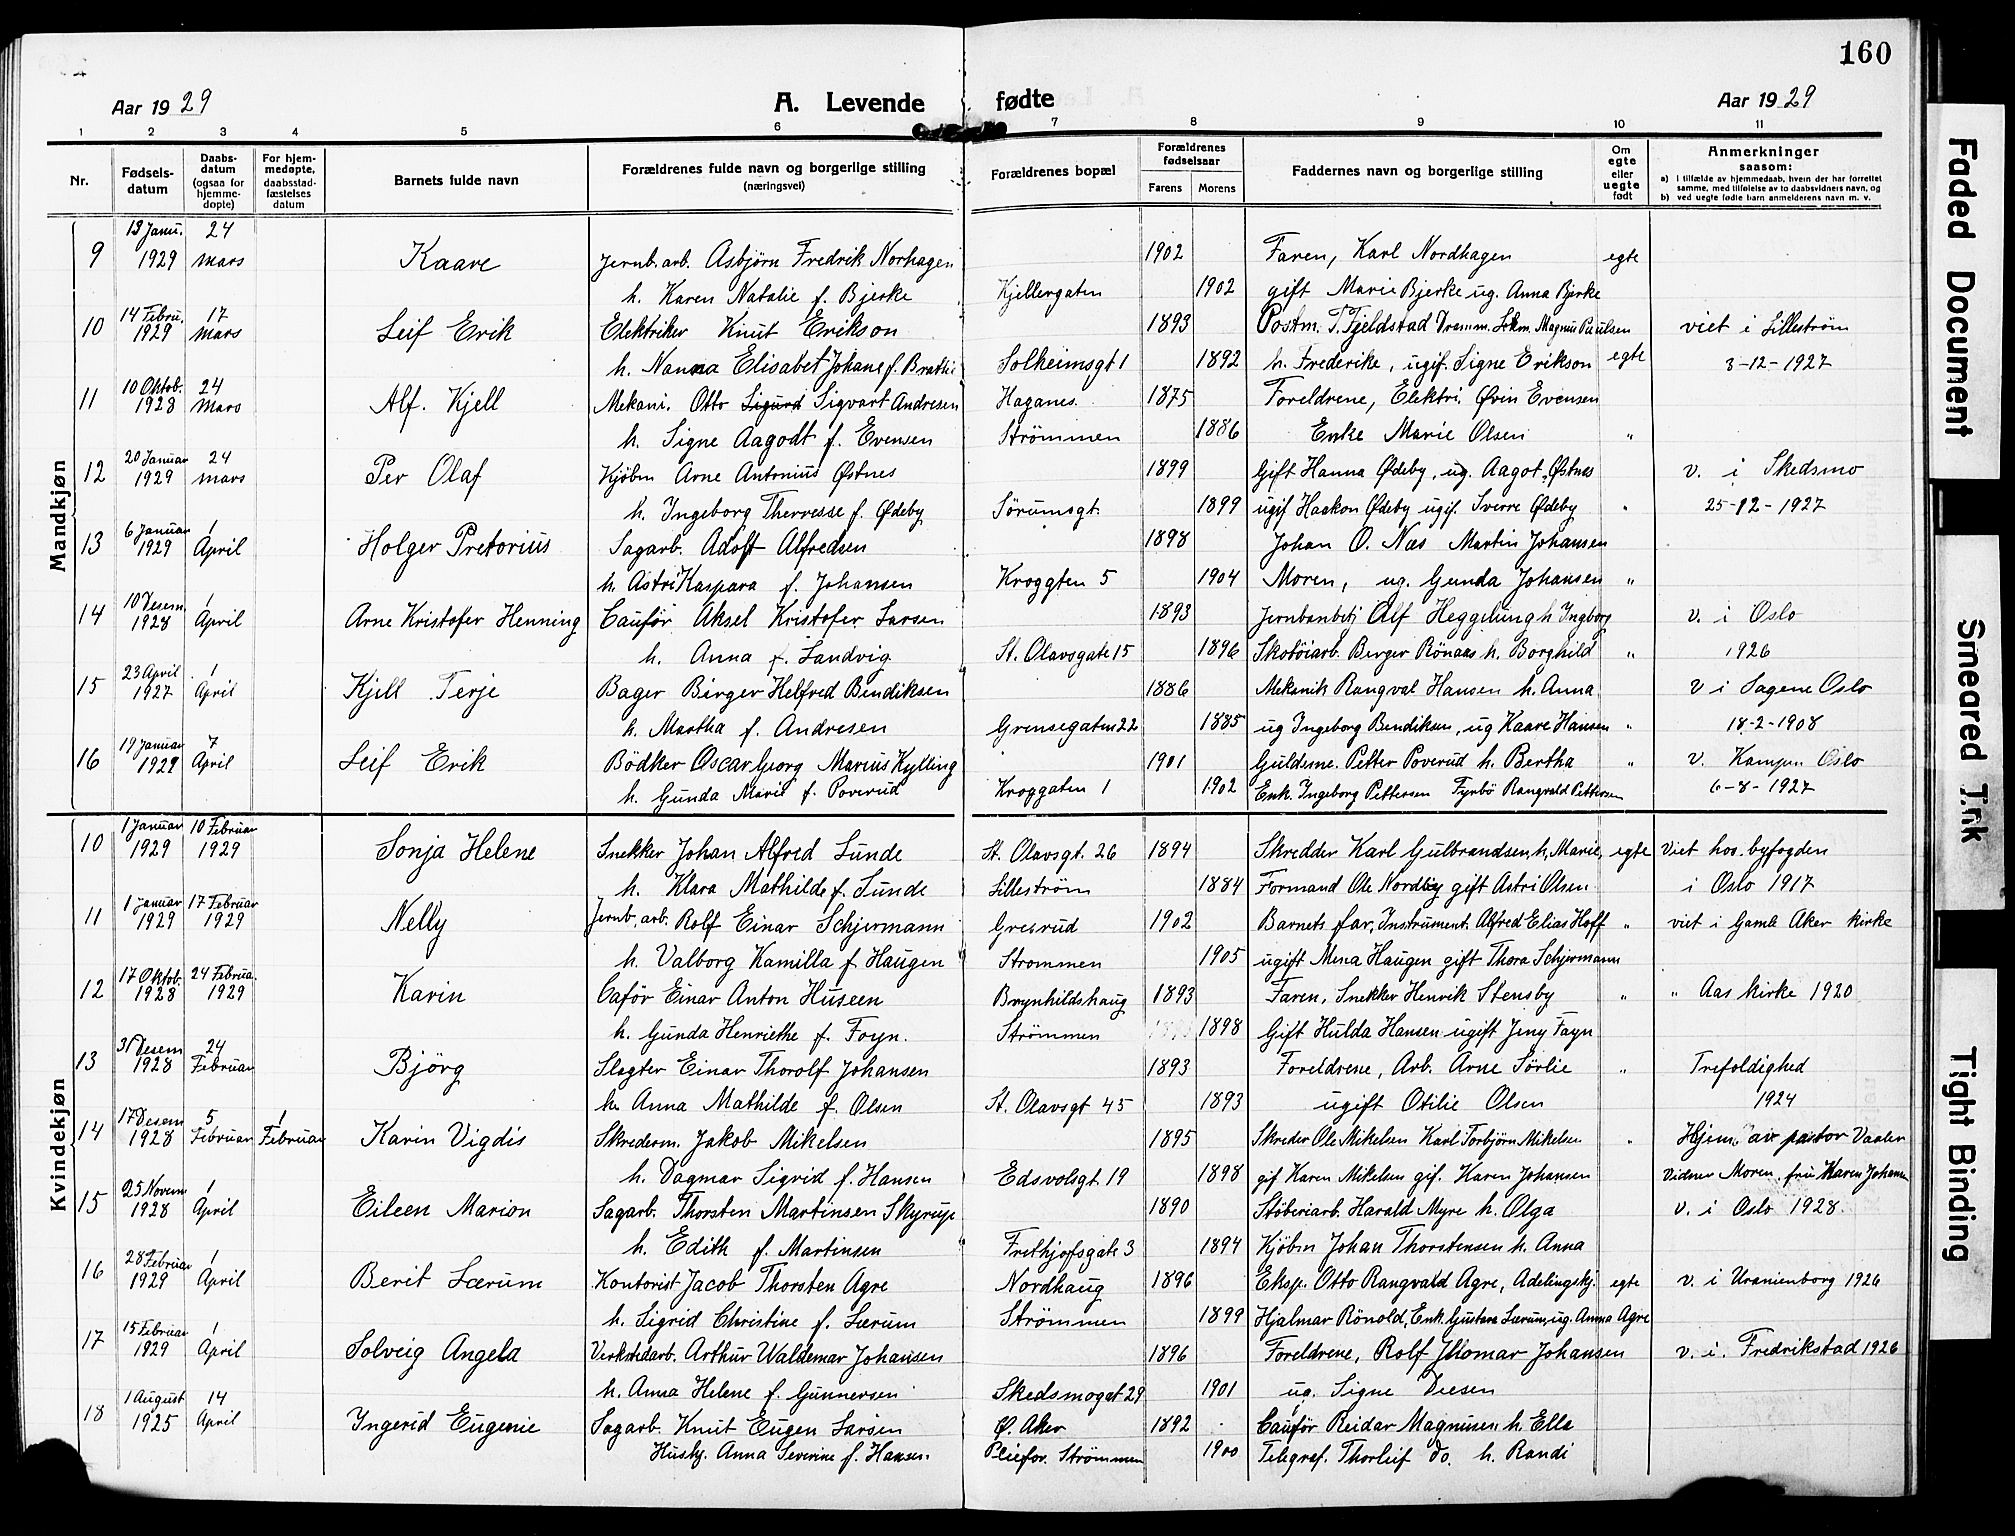 160
Aar 1929 A. Levende fødte Aar 1929
1 2 3 4 5 6 7 8 9 10 11
Nr. Fødsels-datum Daabs-datum (ogsaa for hjemme-døpte) For hjem-medøpte, daabsstad-fæstelses datum Barnets fulde navn Forældrenes fulde navn og borgerlige stilling (næringsvei) Forældrenes bopæl Forældrenes fødselsaar Farens Morens Faddernes navn og borgerlige stilling Om egte eller uegte født Anmerkninger saasom:
a) i tilfælde av hjemmedaab, hvem der har forrettet samme, med tilføielse av to daabsvidners navn, og
b) ved uegte fødte barn anmelderens navn m. v.
Mandkjøn
9 13 Janu. 1929 24 mars Kaare Jernb. arb. Asbjørn Fredrik Norhagen 1902 Faren, Karl Nordhagen egte
h. Karen Natalie f. Bjerke Kjellergaten 1902 gift Marie Bjerke ug. Anna Bjerke
10 14 Febru. 1929 17 mars Leif Erik Elektriker Knut Erikson 1893 Postm. T. Fjeldstad Dramm. Lokm. Magnus Paulsen viet i Lillestrøm
h. Nanna Elisabet Johane f. Brathie Solheimsgt 1 1892 h. Frederike, ugif. Signe Erikson egte 3-12-1927
11 10 Oktob. 1928 24 mars Alf. Kjell Mekani. Otto Sigurd Sigvart Andresen Haganes. 1875 Foreldrene, Elektri Øvin Evensen
h. Signe Aagodt f. Evensen Strömmen 1886 Enke Marie Olsen "
12 20 Januar 1929 24 mars Per Olaf Kjøbm Arne Antonius Østnes 1899 Gift Hanna Ødeby, ug. Aagot Østnes v. i Skedsmo
h. Ingeborg Therresse f. Ødeby Sörumsgt. 1899 ugif Haakon Ødeby ugif. Sverre Ødeby " 25-12-1927
13 6 Januar 1929 1 April Holger Pretorius Sagarb. Adolf Alfredsen 1898 Johan O. Næs Martin Johansen
h. Astri Kaspara f. Johansen Kroggten 5 1904 Moren, ug. Gunda Johansen "
14 10 Desem. 1928 1 April Arne Kristofer Henning Cauför Aksel Kristofer Larsen 1893 Jernbanbetj Alf Heggelung h Ingborg v. i Oslo
h. Anna f. Landvig St. Olavsgate 15 1896 Skotöiarb. Berger Rönaas h. Borghild " 1926
15 23 April 1927 1 April Kjell Terje Bager Birger Helfred Bendiksen 1886 Mekanik Rangval Hansen h. Anna v i Sagene Oslo
h. Martha f. Andresen Grensegaten 22 1885 ug Ingeborg Bendiksen, ug Kaare Hansen " 18-2-1908
16 19 Januar 1929 7 April Leif Erik Bödker Oscar Georg Marius Kylling 1901 Guldsme. Petter Poverud h. Bertha " v. Kampen Oslo
h. Gunda Marie f. Poverud Kroggaten 1 1902 Enk. Ingeborg Pettersen Fyrbö Rangvald Pettersen 6-8-1927
Kvindekjøn
10 1 Januar 1929 10 Februar 1929 Sonja Helene Snekker Johan Alfred Lunde St. Olavsgt. 26 1894 Skredder Karl Gulbrandsen, h. Marie, egte Viet hos. byfogden
h. Klara Mathilde f. Lunde Lilleström 1884 Formand Ole Nordby gift Astri Olsen i Oslo 1917
11 1 januar 1929 17 Februar 1929 Nelly Jernb. arb. Rolf Einar Schjermann Gresrud 1902 Barnets far, Instrument. Alfred Elias Hoff " viet i Gamle Aker kirke
h. Valborg Kamilla f Haugen Strommen 1905 ugift Mena Haugen gift Thora Schjermann
12 17 Oktob. 1928 24 Februa. 1929 Karin Caför Einar Anton Huseen Brynhildshaug 1893 Faren, Snekker Henrik Stensby " " Aas kirke 1920
h. Gunda Henriethe f. Foyn. Strömmen 1898 Gift Hulda Hansen ugift Jeny Fayn
13 31 Desem 1928 24 Februar Björg Slagter Einar Thorolf Johansen 1893 Foreldrene, Arb. Arne Sörlie " Trefoldighed
h. Anna Mathilde f. Olsen St. Olavsgt 45 1893 ugift Otilie Olsen 1924
14 17 Desem 1928 5 Februar 1 Februar Karin Vigdis Skrederm. Jakob Mikelsen 1895 Skreder Ole Mikelsen Karl Torbjörn Mikelsen " Hjem. av pastor Vaaler
h. Dagmar Sigrid f. Hansen Edsvolsgt 19 1898 gif Karen Mikelsen gif. Karen Johansen Vidner Moren, fru Karen Johans
15 25 Novem 1928 1 April Eileen Marion Sagarb. Thorsten Martinsen Skyrup 1890 Stöberiarb. Harald Myre h. Olga v. i Oslo 1928.
h. Edith f. Martinsen Frithjofsgate 3 1894 Kjöbm Johan Thorstensen h. Anna
16 28 Februar 1929 1 April Berit Lærum Kontorist Jacob Thorsten Agre Nordhaug 1896 Eksp. Otto Rangvald Agre, Adelingskj. egte v. i Uranienborg 1926
h. Sigrid Christine f. Lærum Strömmen 1899 Hjalmar Rönold, Enk. Gustava Lærum, ug. Anna Agre
17 15 Februar 1929 1 April Solveig Angela Verkstedarb. Arthur Waldemar Johansen 1896 Foreldrene, Rolf Thomar Johansen v. i. Fredrikstad 1926
h. Anna Helene f. Gunnersen Skedsmogat 29 1901 ug. Signe Diesen
18 1 August 1925 14 April Ingerid Eugenie Sagarb. Knut Eugen Larsen Ø. Aker 1892 Cauför Reidar Magnusen h. Ella
Husby. Anna Severine f. Hansen. Pleiefor. Strömmen 1900 Telegraf. Thorleif do. h. Randi
Faded Document
Smeared Ink
Tight Binding